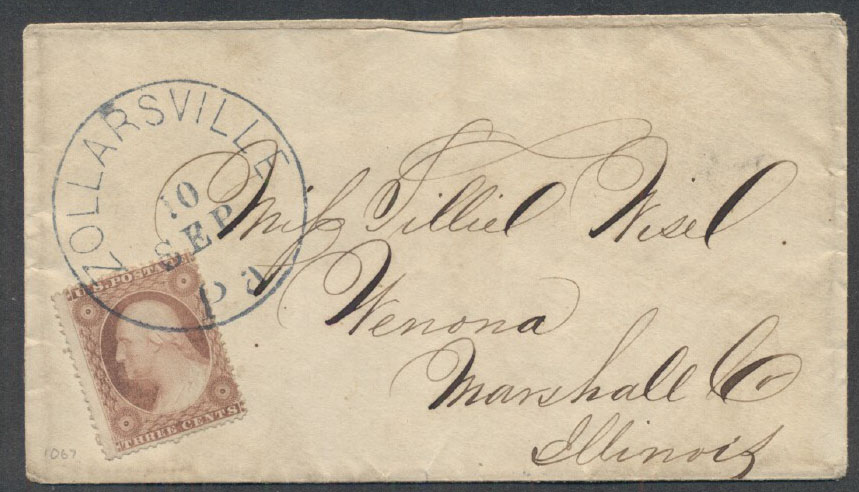 ZOLLARSVILLE
10
SEP
Pa
U.S. POSTAGE
THREE CENTS
Miss Tilliel Wisel.
Wenona
Marshall Co
Illinois
1067